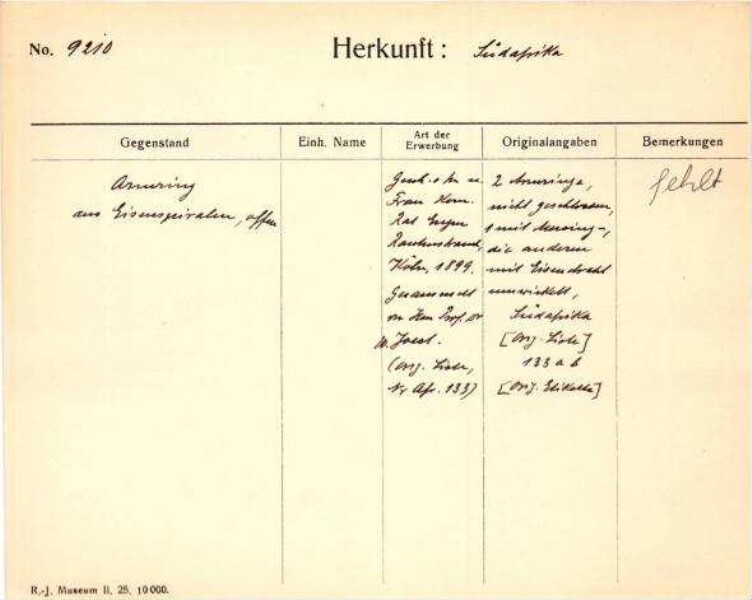 No. 9210
Herkunft: Südafrika
Gegenstand
Einh. Name
Art der Erwerbung
Originalangaben
Bemerkungen
Armring
aus Eisenspiralen, offen
Gesch. v. H. u.
Frau Kom.
Rat Eugen
Rautenstrauch,
Köln, 1899.
Gesammelt
von Herrn Prof. Dr
W. Joest.
(Orig. Liste,
Nr Afr. 133)
2 Armringe,
nicht geschlossen,
1 mit Messing-,
die anderen
mit Eisendraht
umwickelt,
Südafrika
[Orig. Liste]
133 a b
[Orig. Etikette]
fehlt
R.-J. Museum II. 25. 10000.